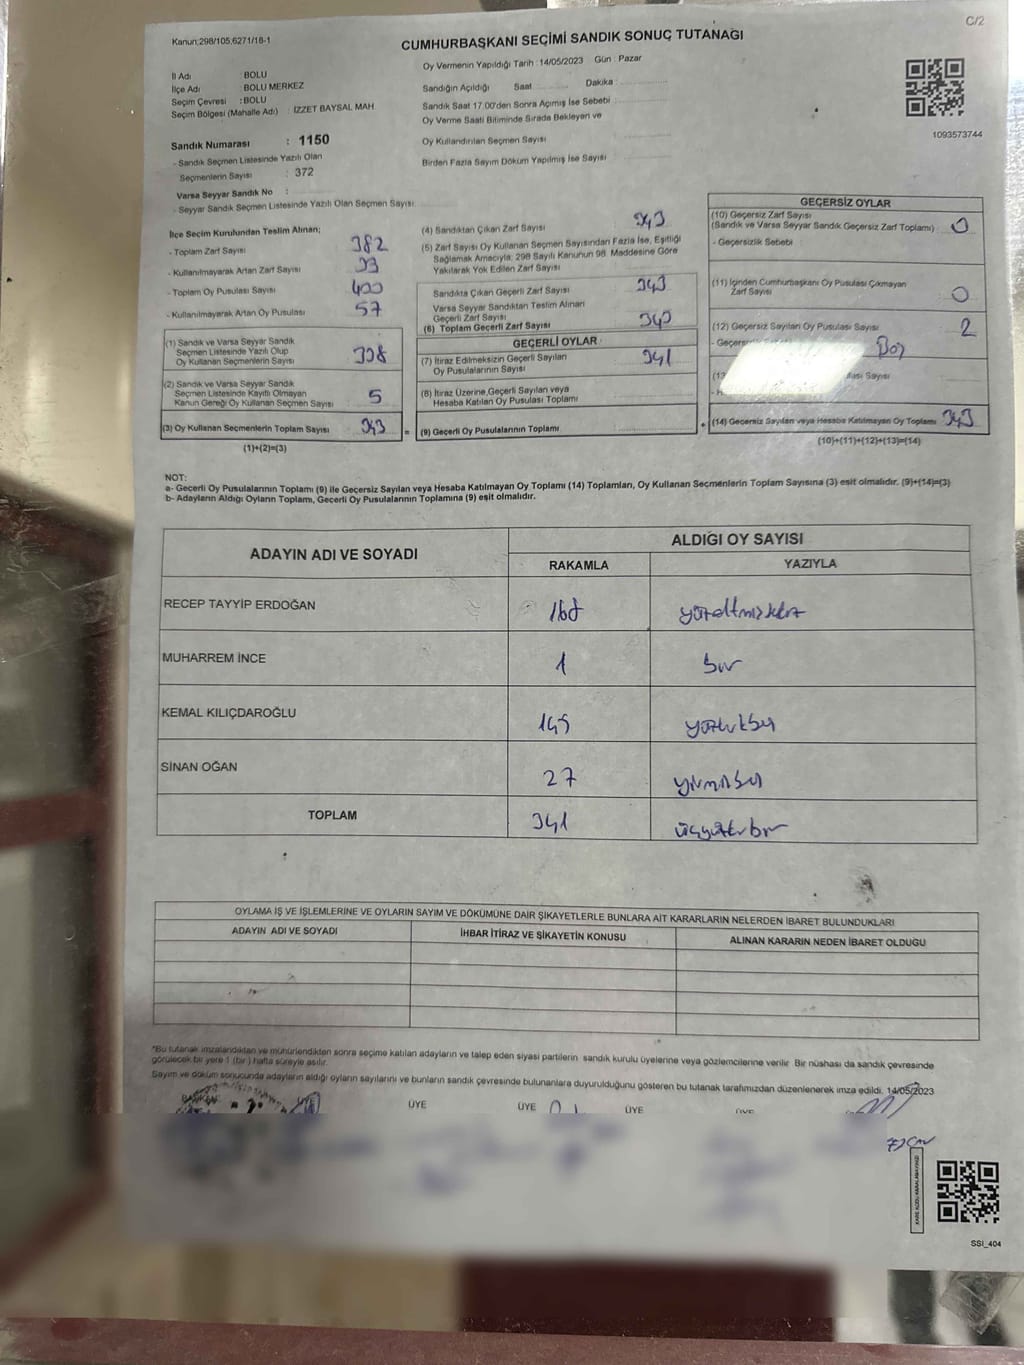 C/2
Kanun:298/105,6271/18-1
CUMHURBAŞKANI SEÇİMİ SANDIK SONUÇ TUTANAĞI
İl Adı : BOLU
İlçe Adı : BOLU MERKEZ
Seçim Çevresi : BOLU
Seçim Bölgesi (Mahalle Adı) : İZZET BAYSAL MAH.
Sandık Numarası : 1150
- Sandık Seçmen Listesinde Yazılı Olan
Seçmenlerin Sayısı : 372
Varsa Seyyar Sandık No :
- Seyyar Sandık Seçmen Listesinde Yazılı Olan Seçmen Sayısı:
Oy Vermenin Yapıldığı Tarih : 14/05/2023 Gün : Pazar
Sandığın Açıldığı Saat Dakika :
Sandık Saat 17.00'den Sonra Açımış İse Sebebi :
Oy Verme Saati Bitiminde Sırada Bekleyen ve
Oy Kullandırılan Seçmen Sayısı
Birden Fazla Sayım Döküm Yapılmış İse Sayısı
1093573744
İlçe Seçim Kurulundan Teslim Alınan;
- Toplam Zarf Sayısı 382
- Kullanılmayarak Artan Zarf Sayısı 39
- Toplam Oy Pusulası Sayısı 400
- Kullanılmayarak Artan Oy Pusulası 57
(1) Sandık ve Varsa Seyyar Sandık
Seçmen Listesinde Yazılı Olup
Oy Kullanan Seçmenlerin Sayısı 338
(2) Sandık ve Varsa Seyyar Sandık
Seçmen Listesinde Kayıtlı Olmayan
Kanun Gereği Oy Kullanan Seçmen Sayısı 5
(3) Oy Kullanan Seçmenlerin Toplam Sayısı 343 =
(1)+(2)=(3)
(4) Sandıktan Çıkan Zarf Sayısı 343
(5) Zarf Sayısı Oy Kullanan Seçmen Sayısından Fazla İse, Eşitliği
Sağlamak Amacıyla; 298 Sayılı Kanunun 98. Maddesine Göre
Yakılarak Yok Edilen Zarf Sayısı
Sandıkta Çıkan Geçerli Zarf Sayısı 343
Varsa Seyyar Sandıktan Teslim Alınan
Geçerli Zarf Sayısı
(6) Toplam Geçerli Zarf Sayısı 343
GEÇERLİ OYLAR
(7) İtiraz Edilmeksizin Geçerli Sayılan
Oy Pusulalarının Sayısı 341
(8) İtiraz Üzerine Geçerli Sayılan veya
Hesaba Katılan Oy Pusulası Toplamı
(9) Geçerli Oy Pusulalarının Toplamı +
GEÇERSİZ OYLAR
(10) Geçersiz Zarf Sayısı
(Sandık ve Varsa Seyyar Sandık Geçersiz Zarf Toplamı) 0
- Geçersizlik Sebebi
(11) İçinden Cumhurbaşkanı Oy Pusulası Çıkmayan
Zarf Sayısı 0
(12) Geçersiz Sayılan Oy Pusulası Sayısı 2
Boş
Sayısı
(14) Geçersiz Sayılan veya Hesaba Katılmayan Oy Toplamı 343
(10)+(11)+(12)+(13)=(14)
NOT:
a- Geçerli Oy Pusulalarının Toplamı (9) ile Geçersiz Sayılan veya Hesaba Katılmayan Oy Toplamı (14) Toplamları, Oy Kullanan Seçmenlerin Toplam Sayısına (3) eşit olmalıdır. (9)+(14)=(3)
b- Adayların Aldığı Oyların Toplamı, Geçerli Oy Pusulalarının Toplamına (9) eşit olmalıdır.
ADAYIN ADI VE SOYADI ALDIĞI OY SAYISI
RAKAMLA YAZIYLA
RECEP TAYYİP ERDOĞAN 168 yüzaltmışsekiz
MUHARREM İNCE 1 bir
KEMAL KILIÇDAROĞLU 145 yüzkırkbeş
SİNAN OĞAN 27 yirmiyedi
TOPLAM 341 üçyüzkırkbir
OYLAMA İŞ VE İŞLEMLERİNE VE OYLARIN SAYIM VE DÖKÜMÜNE DAİR ŞİKAYETLERLE BUNLARA AİT KARARLARIN NELERDEN İBARET BULUNDUKLARI
ADAYIN ADI VE SOYADI İHBAR İTİRAZ VE ŞİKAYETİN KONUSU ALINAN KARARIN NEDEN İBARET OLDUĞU
*Bu tutanak imzalandıktan ve mühürlendikten sonra seçime katılan adayların ve talep eden siyasi partilerin sandık kurulu üyelerine veya gözlemcilerine verilir. Bir nüshası da sandık çevresinde
görülecek bir yere 1 (bir ) hafta süreyle asılır.
Sayım ve döküm sonucunda adayların aldığı oyların sayılarını ve bunların sandık çevresinde bulunanlara duyurulduğunu gösteren bu tutanak tarafımızdan düzenlenerek imza edildi. 14/05/2023
BAŞKAN ÜYE ÜYE ÜYE ÜYE
SSI_404